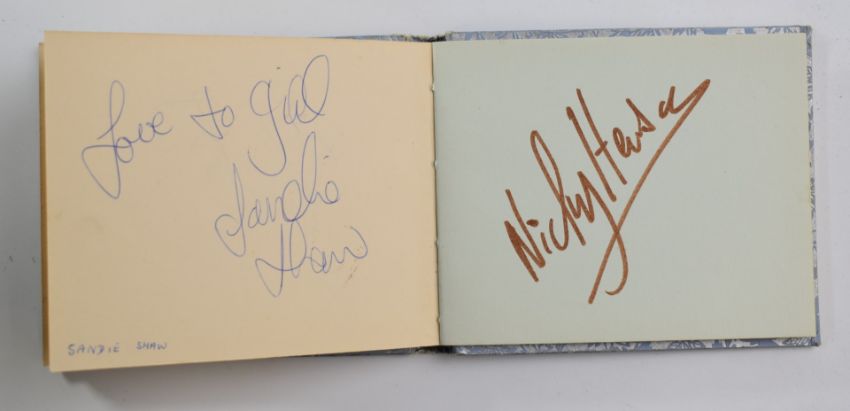 Love to Gill
Sandie
Shaw
SANDIE SHAW
Nicky Henson